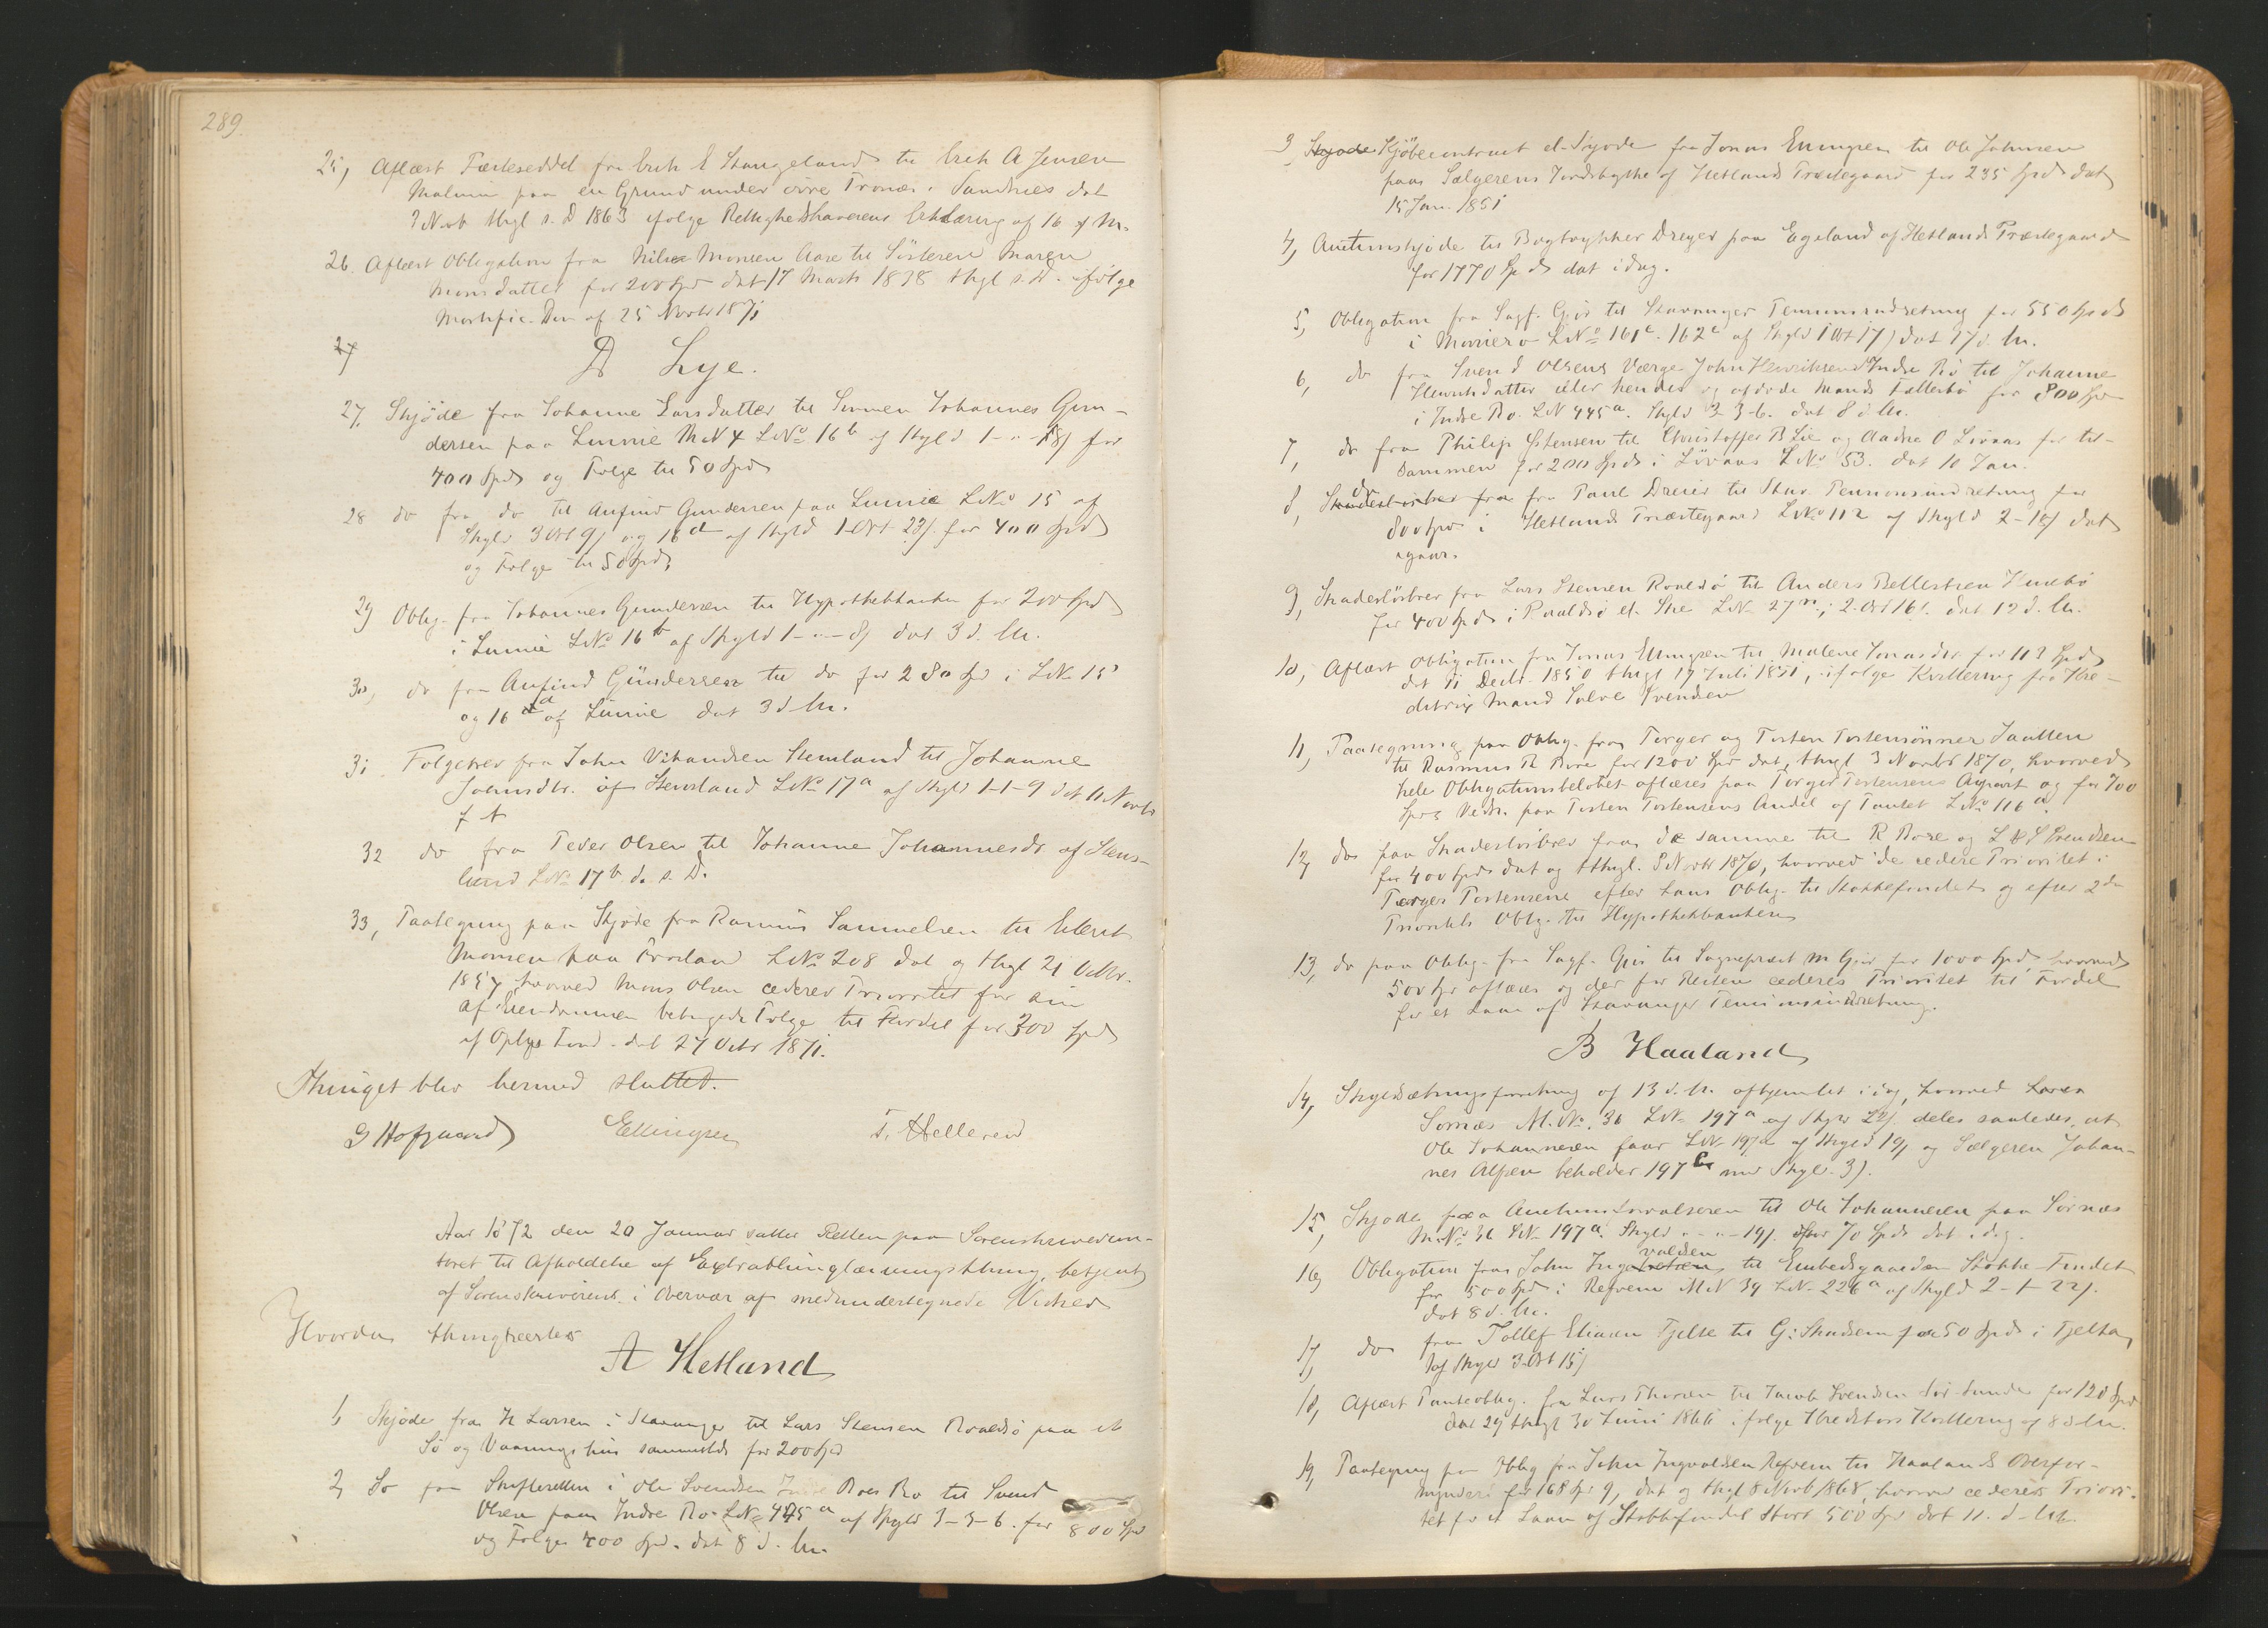 289.
25, Aflæst Fæsteseddel fra Erik E Stangeland til Erik A Jensen
Malmin paa en Grund under øvre Tronæs i Sandnes dat
3 Novb thgl s. D 1863 ifølge Rettighedshaverens Erklæring af 16 f. M.
26. Aflæst Obligation fra Nils Monsen Aase til Søsteren Maren
Monsdatter for 200 Spd dat 17 Marts 1838 thgl s. D. ifølge
Mortific. Dom af 25 Novbr 1871
27
D Lye.
27. Skjøde fra Johanne Larsdatter til Sønnen Johannes Gun-
dersen paa Lunnie M N 4 L No 16 b af Skyld 1 - " - 8 / for
400 Spd og Folge til 50 Spd
28 do fra do til Anfind Gundersen paa Lunnie L No 15 af
Skyld 3 Ort 9 / og 16 d af Skyld 1 Ort 23 /. for 400 Spd
og Folge til 50 Spd,
29 Oblig. fra Johannes Gundersen til Hypothekbanken for 200 Spd
i Lunnie L No 16 b af Skyld 1 - " - 8 / dat 3 d. M.
30, do fra Anfind Gundersen til do for 280 Spd i L No 15
og 16 d af Lunnie dat 3 d M.
31. Folgebrev fra John Vikandsen Stensland til Johanne
Joensdtr. af Stensland L No 17 a af Skyld 1-1-9 dat 11 Novbr
f A
32 do fra Peder Olsen til Johanne Johannesdr af Stens-
land L No 17 b. d. s. D.
33, Paategning paa Skjøde fra Rasmus Samuelsen til Eilert
Monsen paa Frøiland L No 208 dat og thgl 21 Octbr.
1857, hvorved Mons Olsen cederer Prioritet for sin
af Eiendommen betingede Folge til Fordel for 300 Spd
af Oplys Fond. dat 27 Octbr 1871.
Thinget blev hermed sluttet.
G Hofgaard Ellingsen T. Helleren
Aar 1872 den 20 Januar sattes Retten paa Sorenskrivercon-
toret til Afholdelse af Extrathinglæsningsthing, betjent
af Sorenskriveren i Overvær af medundertegnede Vidner
Hvorda thinglæstes
A Hetland
1, Skjøde fra H Larsen i Stavanger til Lars Stensen Roaldsø paa et
Sø og Vaaningshus sammesteds for 200 Spd
2, Do fra Skifteretten i Ole Svendsen Indre Roes Bo til Svend
Olsen paa Indre Bo L No 445 a af Skyld 3-3-6. for 800 Spd
og Folge 400 Spd. dat 8 d. M.
3, Skjøde Kjøbecontract el. Skjøde fra Jonas Ellingsen til Ole Johnsen
paa Sælgerens Jordstykke af Hetlands Præstegaard for 235 Spd dat
15 Jan. 1851
4, Auctionsskjøde til Bogtrykker Dreyer paa Egeland af Hetlands Præstegaard
for 1770 Spd dat idag.
5, Obligation fra Sagf. Gjør til Stavanger Pensionsindretning for 550 Spd
i Mariero L No 161 c. 162 c af Skyld 1 Ort 17 / dat 17 d. M.
6, do fra Svend Olsens Værge John Henriksen Indre Bø til Johanne
Henriksdatter eller hendes og afdøde Mands Fællesbo for 800 Spd
i Indre Bo. L N 445 a. Skyld 3-3-6. dat 8 d M.
7, do fra Philip Østensen til Christoffer B Lie og Aadne O Livaas for til-
sammen for 200 Spd i Løvaas L No 53. dat 10 Jan.
8, Skadesløsbrev fra do fra Paul Dreier til Stav. Pensionsindretning for
800 Spd i Hetlands Præstegaard L No 112 af Skyld 2-1- / dat
igaar.
9, Skadesløsbrev fra Lars Stensen Roaldsø til Anders Pellestsen Husebø
for 400 Spd i Roaldsø el. Skre L No 27 n; 2 Ort 16 /. dat 12 d. M.
10, Aflæst Obligation fra Jonas Ellingsen til Malene Jonasdtr. for 113 Spd
dat 11 Decbr. 1850 thgl 17 Juli 1851, ifølge Kvittering fra Kre-
ditrix Mand Salve Svendsen
11, Paategning paa Oblig. fra Torger og Torsten Torstensønner Tautlen
til Rasmus R Bore for 1200 Spd dat, thgl 3 Novbr 1870, hvorved
hele Obligationsbeløbet aflæses paa Torger Torstensens Aapart og for 700
Spds Vedk. paa Torsten Torstensens Andel af Tautet L No 116 a
12, do paa Skadesløsbrev fra de samme til R Bore og L & S Svendsen
for 400 Spd dat og thgl. 3 Novbr 1870, hvorved de cedere Prioritet i
Torger Torstensens efter hans Oblig. til Stokkefondet og efter 2den
Prioritets Oblg. til Hypothekbanken
13, do paa Oblig. fra Sagf. Gjør til Sognepræst M Gjør for 1000 Spd, hvorved
500 Spd aflæses og der for Resten cederes Prioritet til Fordel
for et Laan af Stavanger Pensionsindretning.
B Haaland
14, Skyldsætningsforretning af 13 d. M. afhjemlet idag, hvorved
Sørnæs M. No. 36 L No 197 a af Skyld 22 / deles saaledes, at
Ole Johannesen faar L No 197 a af Skyld 19 / og Sælgeren Johan-
nes Olsen beholder 197 b med Skyld. 3 /.
15, Skjøde fra Auctionsforvalteren til Ole Johannesen paa Sørnæs
M. No 36 L No 197 a. Skyld " - " - 19 /. for 70 Spd dat idag.
16, Obligation fra John Ingevaldsen til Embedsgaardenes Stokke-Fondet
for 500 Spd i Refsnes M N 39 L No 226 a af Skyld 2 - 1 - 22 /.
dat 8 d. M.
17, do fra Tollef Eliasen Tjelte til G: Skadsem for 50 Spd i Tjelta,
af Skyld 3 Ort 15 /
18, Aflæst Panteoblig. fra Lars Thorsen til Jacob Svendsen Sør-Sunde for 120 Spd
dat 29 thgl 30 Juni 1866 ifølge Kreditors Kvittering af 8 d M.
19, Paategning paa Oblig fra John Ingvaldsen Refsnes til Haalands Overfor-
mynderi for 168 Spd 9, dat og thgl 8 Novb 1868, hvorved cederes Priori-
tet for et Laan af Stokkefondet stort 500 Spd dat 11. d. M.